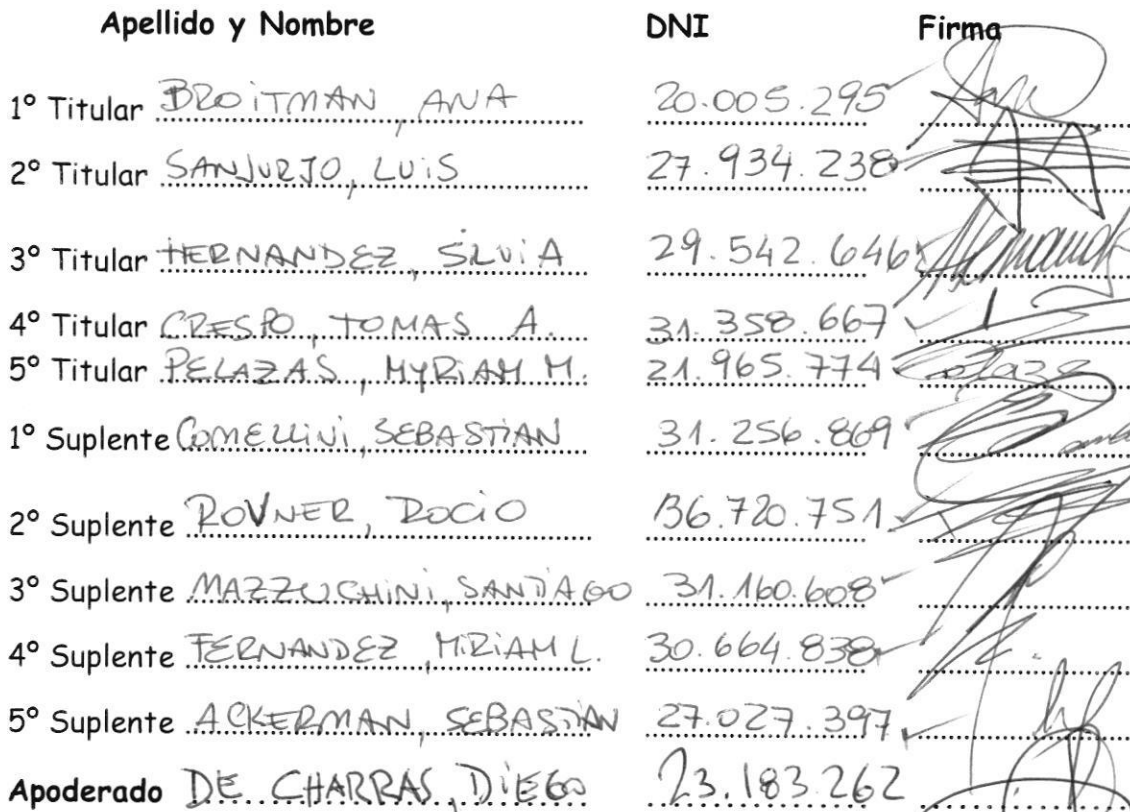 Apellido y Nombre DNI Firma
1° Titular BROITMAN, ANA 20.005.295
2° Titular SANJURJO, LUIS 27.934.238
3° Titular HERNANDEZ, SILVIA 29.542.646
4° Titular CRESPO, TOMAS A. 31.358.667
5° Titular PELAZAS, MYRIAM M. 21.965.774
1° Suplente COMELLINI, SEBASTIAN 31.256.869
2° Suplente ROVNER, ROCIO 36.720.751
3° Suplente MAZZUCHINI, SANTIAGO 31.160.608
4° Suplente FERNANDEZ, MIRIAM L. 30.664.838
5° Suplente ACKERMAN, SEBASTIAN 27.027.397
Apoderado DE CHARRAS, DIEGO 23.183.262